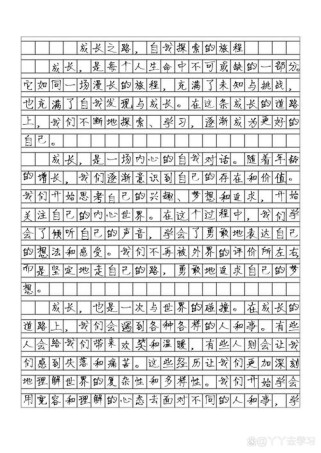 成长之路，自我探索的旅程
成长，是每个人生命中不可或缺的一部分。
它如同一场漫长的旅程，充满了未知与挑战，
也充满了自我发现与成长。在这条成长的道路
上，我们不断地探索、学习，逐渐成为更好的
自己。
成长，是一场内心的自我对话。随着年龄
的增长，我们逐渐意识到自己的存在和价值。
我们开始思考自己的兴趣、梦想和追求，开始
关注自己的内心世界。在这个过程中，我们学
会了倾听自己的声音，学会了勇敢地表达自己
的想法和感受。我们不再被外界的评价所左右
而是坚定地走自己的路，勇敢地追求自己的梦
想。
成长，也是一次与世界的碰撞。在成长的
道路上，我们会遇到各种各样的人和事。有些
人会给我们带来欢笑和温暖，有些人则会让我
们感到失落和痛苦。这些经历让我们更加深刻
地理解世界的复杂性和多样性。我们开始学会
用宽容和理解的心态去面对不同的人和事，学
@丫丫去学习